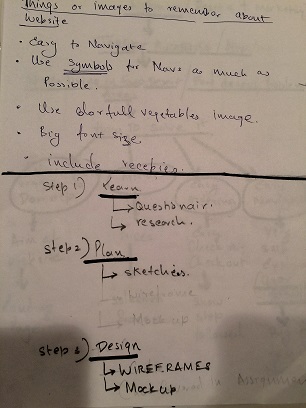 Things or images to remember about
website
• Easy to Navigate
• Use Symbols for Nave as much as
Possible.
• Use colorfull vegetables image.
• Big font size
• include recepies.
Step 1) Learn
Questionair.
research.
Step 2) Plan
sketches.
wireframe
Mock up
Step 3) Design
WIREFRAMES
Mockup